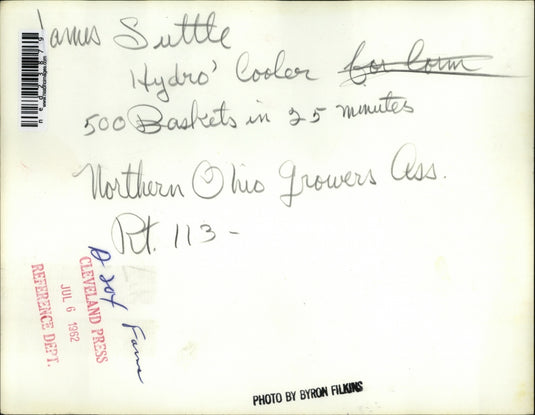 James Suttle
Hydro' Cooler for Corn
500 Baskets in 25 minutes
Northern Ohio Growers Ass.
Rt. 113 -
CLEVELAND PRESS
JUL 6 1962
REFERENCE DEPT.
PHOTO BY BYRON FILKINS